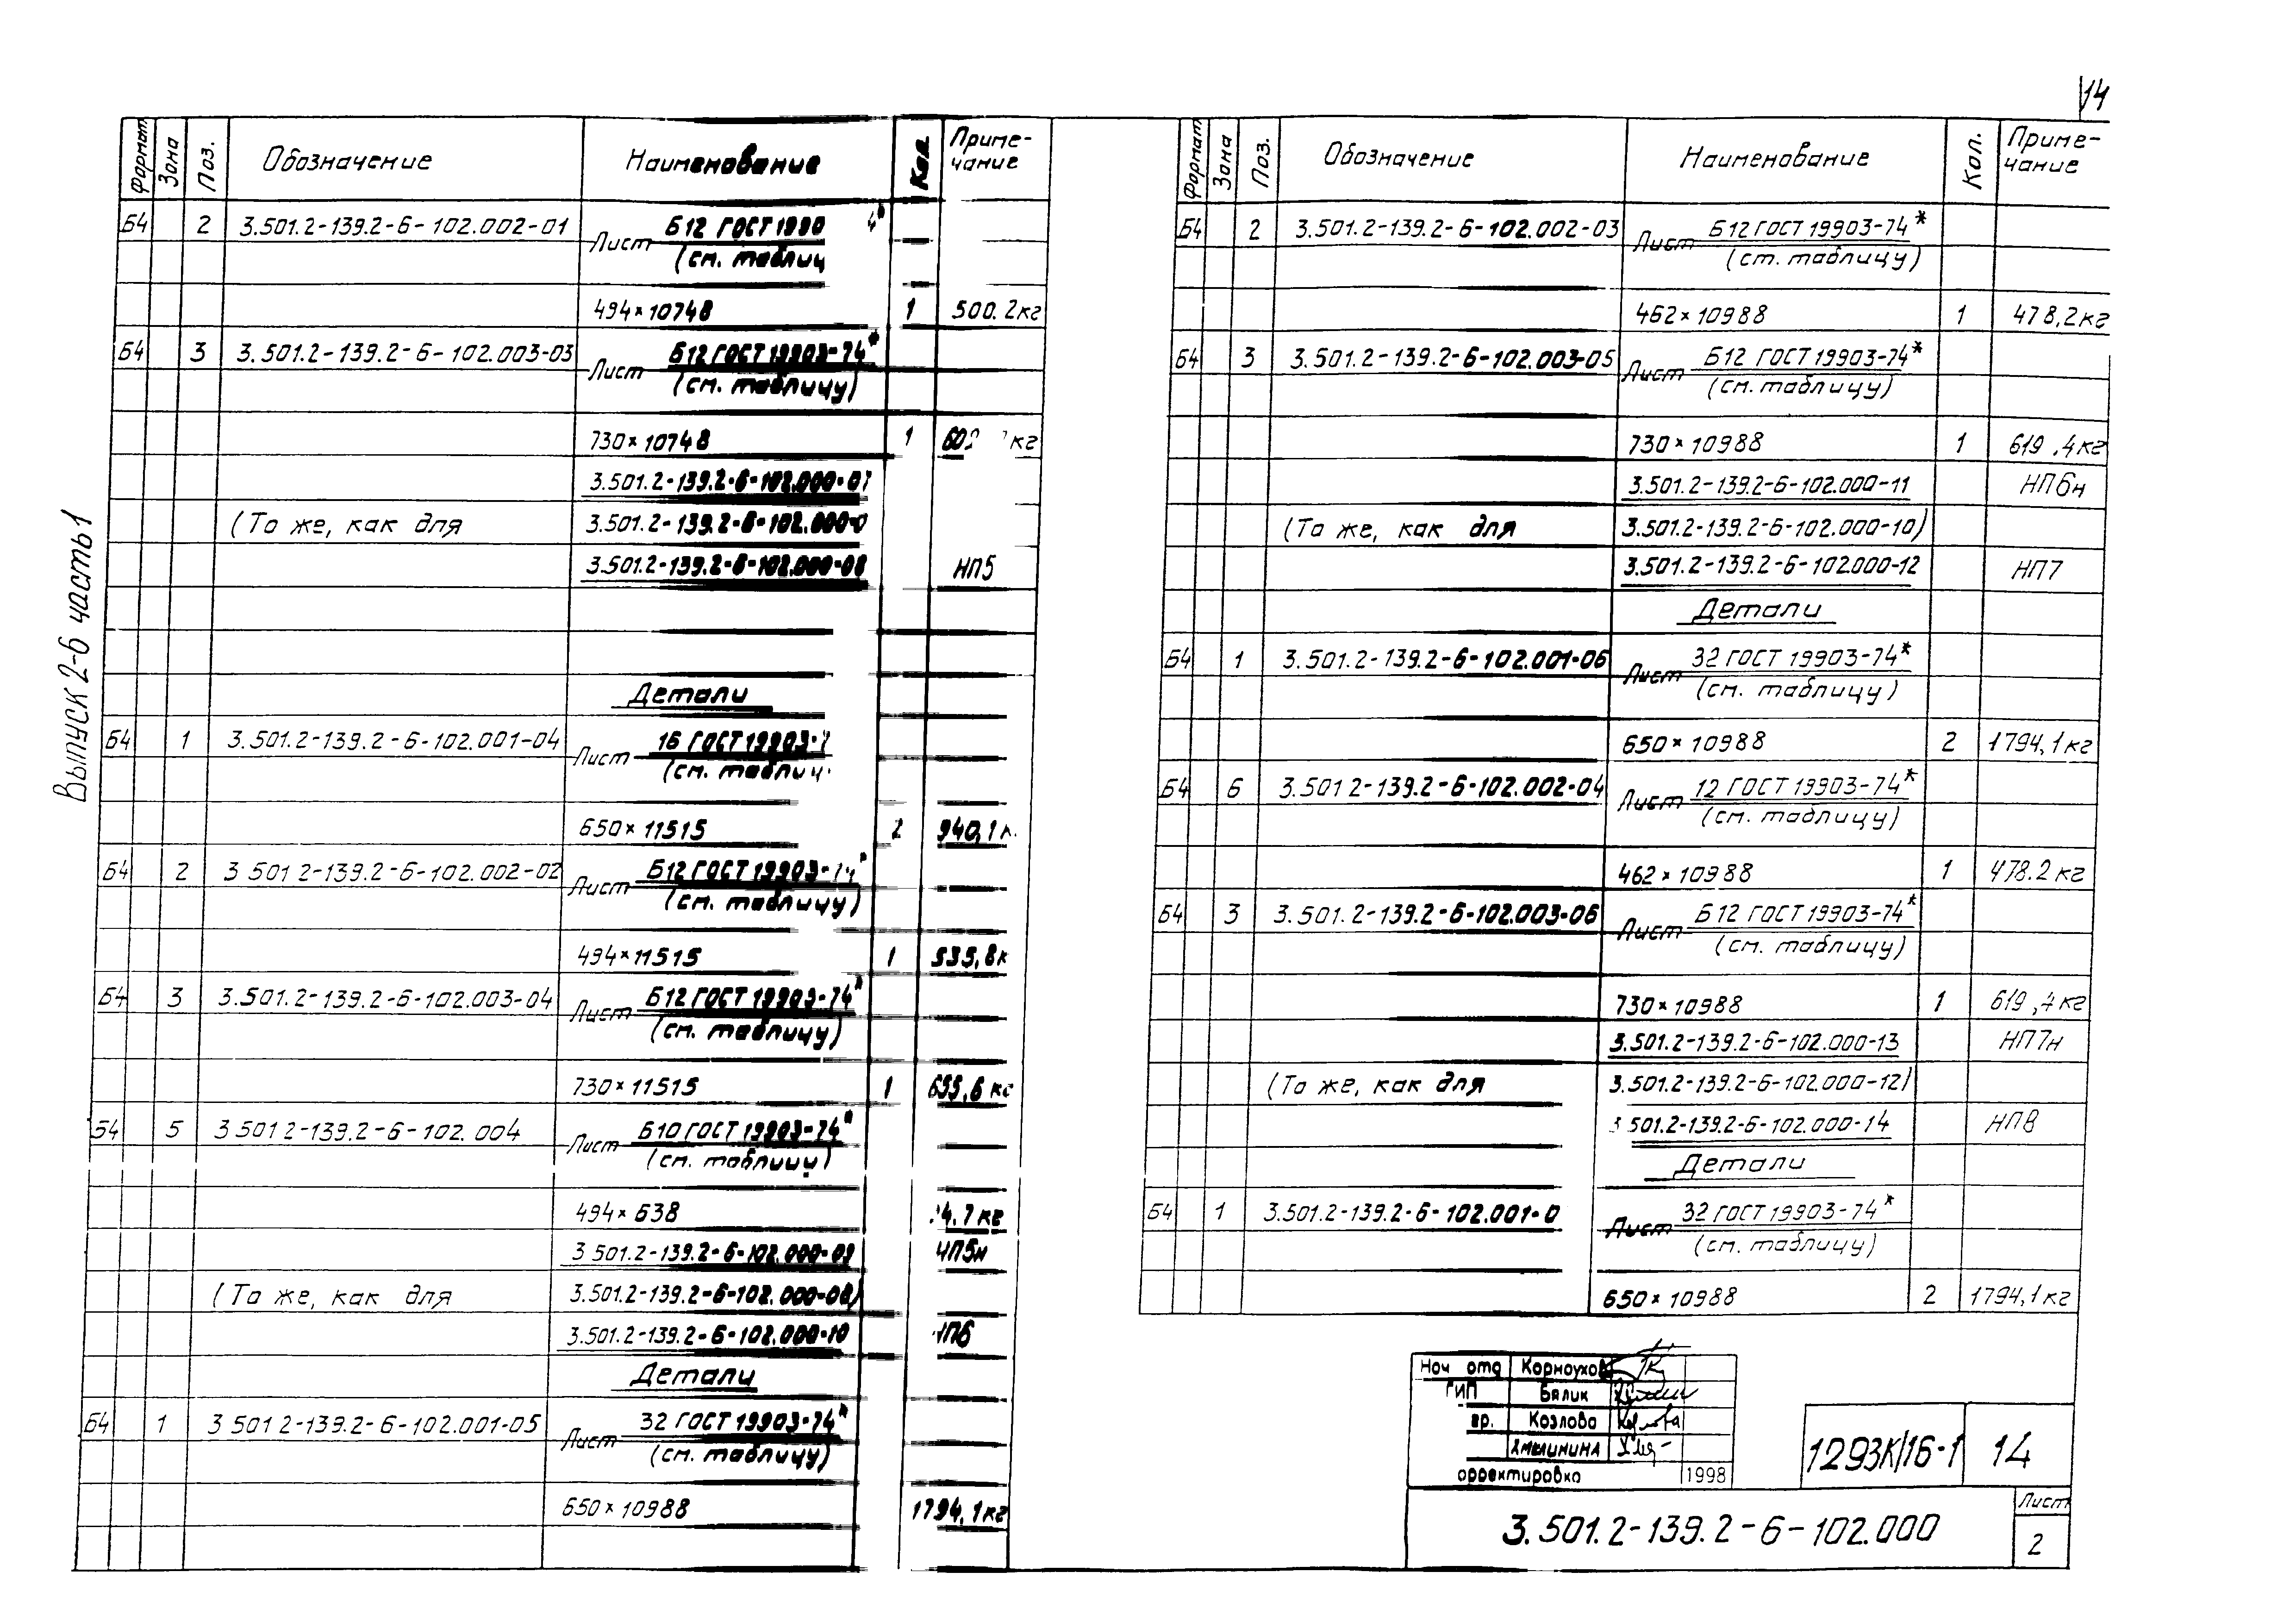 14
Выпуск 2-6 часть 1
Формат Зона Поз. Обозначение Наименование Кол. Приме-
чание
Б4 2 3.501.2-139.2-6-102.002-01 Лист Б12 ГОСТ 1990 4*
(см. таблиц
494×10748 1 500.2кг
Б4 3 3.501.2-139.2-6-102.003-03 Лист Б12 ГОСТ 19903-74*
(см. таблицу)
730×10748 1 кг
3.501.2-139.2-6-102.000-07
(То же, как для 3.501.2-139.2-6-102.000-0
3.501.2-139.2-6-102.000-08 НП5
Детали
Б4 1 3.501.2-139.2-6-102.001-04 Лист 16 ГОСТ 19903-7
(см. таблиц
650×11515 2 940,1 к
Б4 2 3 501 2-139.2-6-102.002-02 Лист Б12 ГОСТ 19903-74*
(см. таблицу)
494×11515 1 535,8к
Б4 3 3.501.2-139.2-6-102.003-04 Лист Б12 ГОСТ 19903-74*
(см. таблицу)
730×11515 1 655,6 кг
Б4 5 3 501 2-139.2-6-102.004 Лист Б10 ГОСТ 19903-74*
(см. таблицу)
494×638 4.7кг
3 501.2-139.2-6-102.000-09 НП5н
(То же, как для 3.501.2-139.2-6-102.000-08)
3.501.2-139.2-6-102.000-10 НП6
Детали
Б4 1 3 501 2-139.2-6-102.001-05 Лист 32 ГОСТ 19903-74*
(см. таблицу)
650×10988 1794,1кг
Формат Зона Поз. Обозначение Наименование Кол. Приме-
чание
Б4 2 3.501.2-139.2-6-102.002-03 Лист Б12 ГОСТ 19903-74*
(ст. таблицу)
462×10988 1 478,2кг
Б4 3 3.501.2-139.2-6-102.003-05 Лист Б12 ГОСТ 19903-74*
(см. таблицу)
730×10988 1 619,4кг
3.501.2-139.2-6-102.000-11 НП6н
(То же, как для 3.501.2-139.2-6-102.000-10)
3.501.2-139.2-6-102000-12 НП7
Детали
Б4 1 3.501.2-139.2-6-102.001-06 Лист 32 ГОСТ 19903-74*
(см. таблицу)
650×10988 2 1794,1кг
Б4 6 3.501 2-139.2-6-102.002-04 Лист 12 ГОСТ 19903-74*
(см. таблицу)
462×10988 1 478.2кг
Б4 3 3.501.2-139.2-6-102.003-06 Лист Б12 ГОСТ 19903-74*
(см. таблицу)
730×10988 1 619,4кг
3.501.2-139.2-6-102.000-13 НП7н
(То же, как для 3.501.2-139.2-6-102.000-12)
3 501.2-139.2-6-102.000-14 НП8
Детали
Б4 1 3.501.2-139.2-6-102.001-0 Лист 32 ГОСТ 19903-74*
(см. таблицу)
650×10988 2 1794,1кг
Нач отд Корноухов
ГИП Бялик
гр. Козлова
орректировка 1998
1293К/16-1 14
3.501.2-139.2-6-102.000
Лист
2